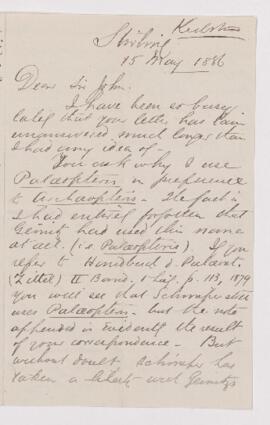 Kidston
Stirling
15 May 1886
Dear Sir John,
I have been so busy
lately that your letter has lain
unanswered much longer than
I had any idea of –
You ask why I use
Palæopteris in preference
to Archæopteris – The fact is
I had entirely forgotten that
Geinitz had used this name
at all. (i.e. Palæopteris). If you
refer to Handbuch d. Palæont.
(Zittel) II Band. p. 113, 1879
you will see that Schimper still
uses Palæopteris – but the note
appended is evidently the result
of your correspondence – But
without doubt Schimper has
taken a liberty with Geinitz's